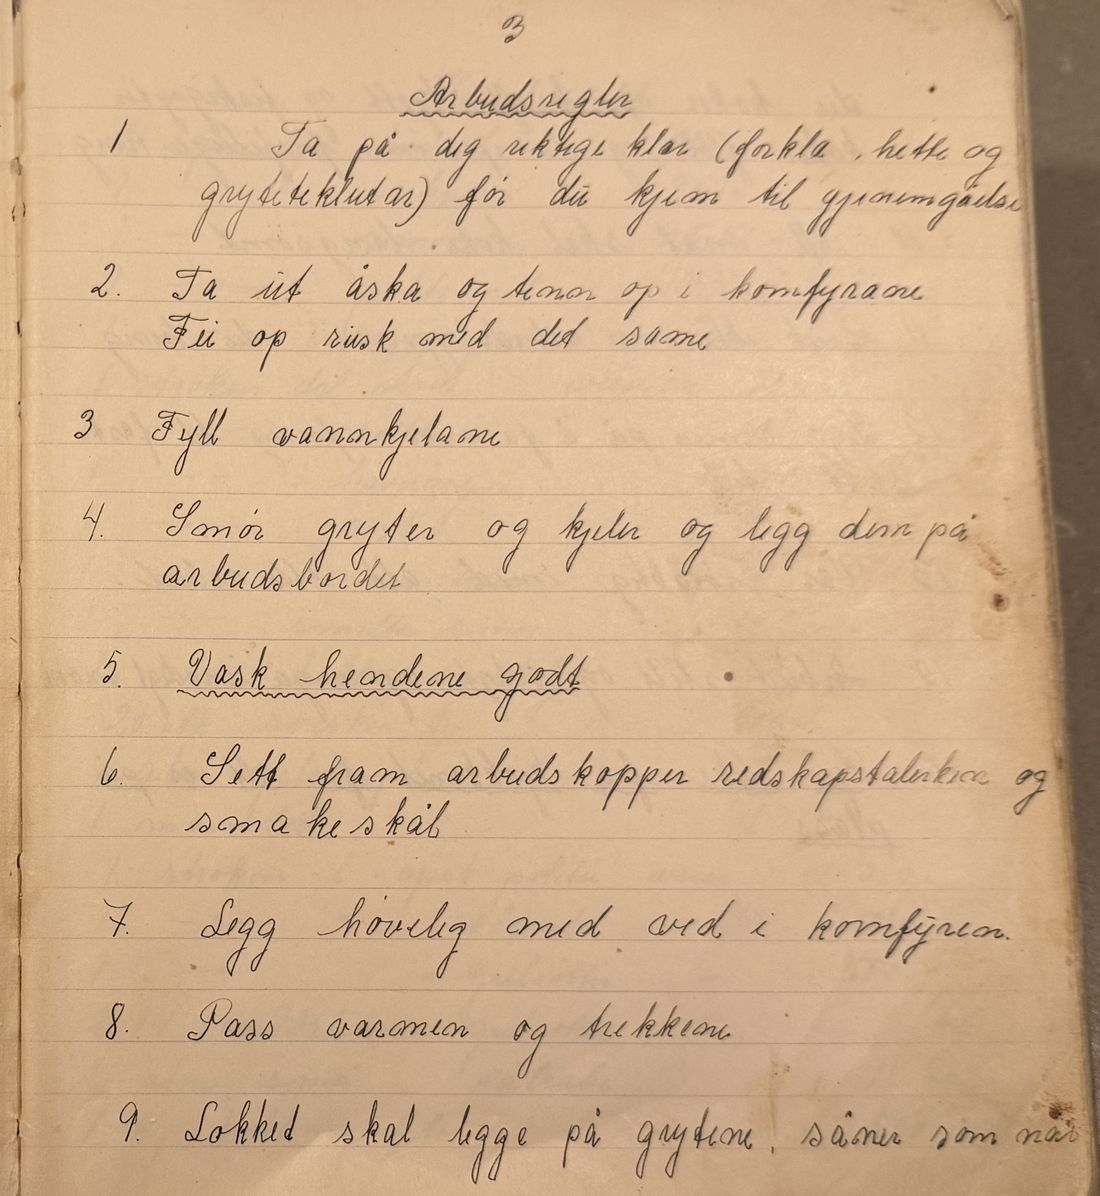 3
Arbudsregler
1 Ta på deg riktige klar (forkla, hette og
gryteteklutar) før du kjem til gjenemgåelse
2. Ta ut åska og tenn op i komfyrane
Fei op rusk med det same
3 Fyll vannkjelane
4. Smør gryter og kjeler og legg dem på
arbudsbordet
5. Vask hendene godt
6. Sett fram arbudskopper redskapstalerken og
smakeskål
7. Legg høvelig med ved i komfyren.
8. Pass varmen og trekkene
9. Lokket skal legge på grytene, såner som når